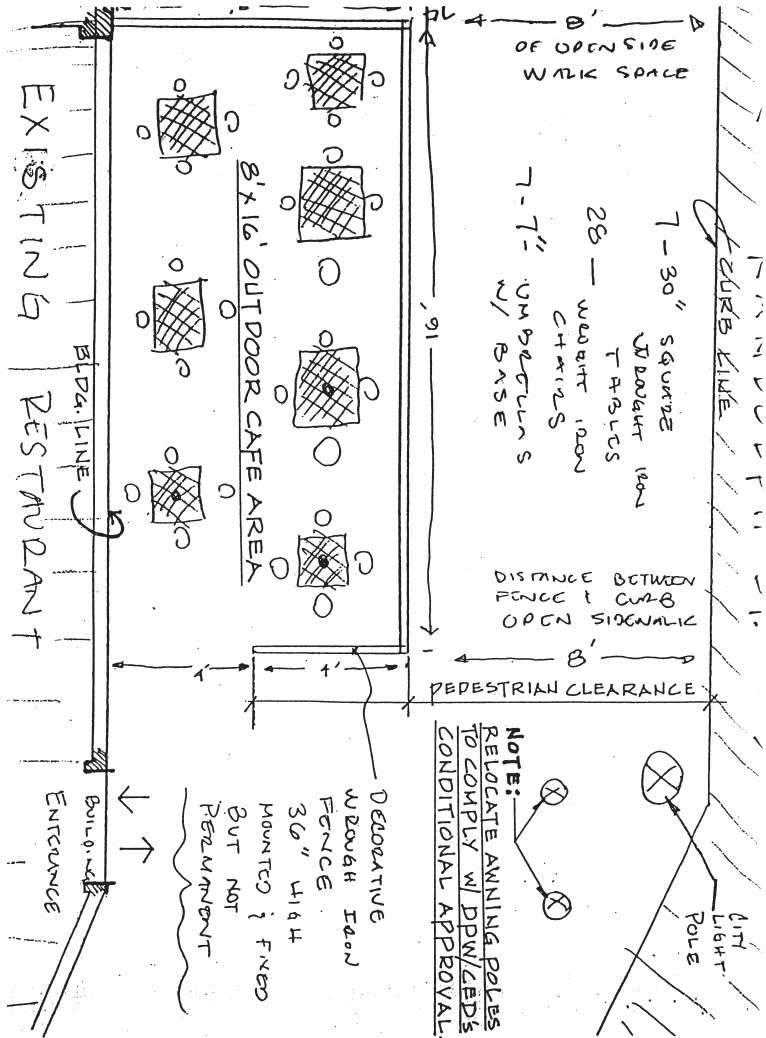 8'
OF OPEN SIDE
WALK SPACE
CURB LINE
7 - 30" SQUARE
WROUGHT IRON
TABLES
28 — WROUGHT IRON
CHAIRS
7 - 7" UMBRELLAS
W/ BASE
16'
8'X16' OUTDOOR CAFE AREA
BLDG. LINE
EXISTING RESTAURANT
DISTANCE BETWEEN
FENCE & CURB
OPEN SIDEWALK
8'
4'
4'
PEDESTRIAN CLEARANCE
NOTE:
RELOCATE AWNING POLES
TO COMPLY W/ DPW/CED'S
CONDITIONAL APPROVAL.
CITY
LIGHT
POLE
DECORATIVE
WROUGH IRON
FENCE
36" HIGH
MOUNTED & FIXED
BUT NOT
PERMANENT
BUILDING
ENTERANCE